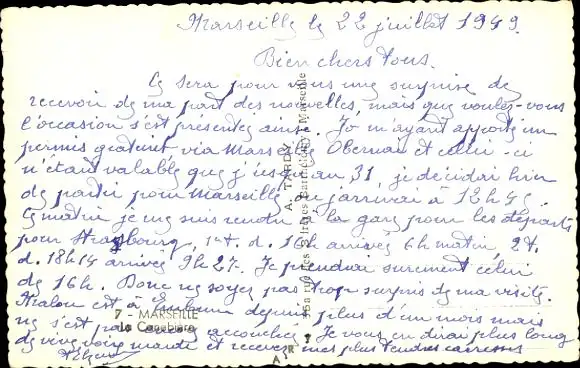 Marseille le 22 juillet 1949.
Bien chers tous.
Ce sera pour vous une surprise de
recevoir de ma part des nouvelles, mais que voulez-vous
l'occasion s'est présentée ainsi. m'ayant apporté un
permis gratuit via Marseille Obernai et celui-ci
n'étant valable que au 31 je décidai hier
de partir pour Marseille ou j'arrivai à 12h45
Ce matin je me suis rendu à la gare pour les départs
pour Strasbourg, 1 t. d. 16h arrivée 6h matin 2 t.
d. 18h14 arrivée 9h27. Je prendrai surement celui
de 16h. Donc ne soyez pas trop surpris de ma visite.
est à Embrun depuis plus d'un mois mais
ne s'est pas encore accouchée. Je vous en dirai plus long
de vive voix mardi et recevez mes plus tendres caresses
7 - MARSEILLE
La Canebière
A. TARDY
45a rue des Barthélemy - Marseille
A R